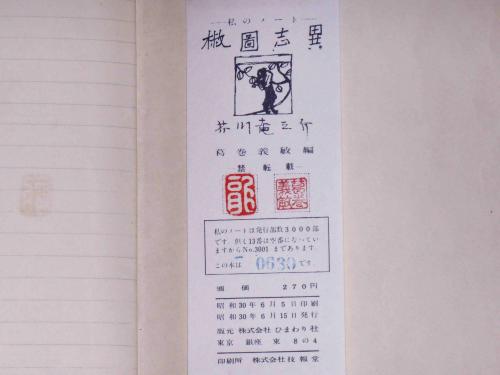 私のノート
椒圖志異
芥川竜之介
葛巻義敏編
禁転載
私のノートは発行部数3000部
です。但く13番は空番になってい
ますからNo.3001まであります。
この本は 0630 です。
価価 270円
昭和30年6月5日印刷
昭和30年6月15日発行
版元 株式会社ひまわり社
東京 銀座東8の4
印刷所 株式会社技報堂